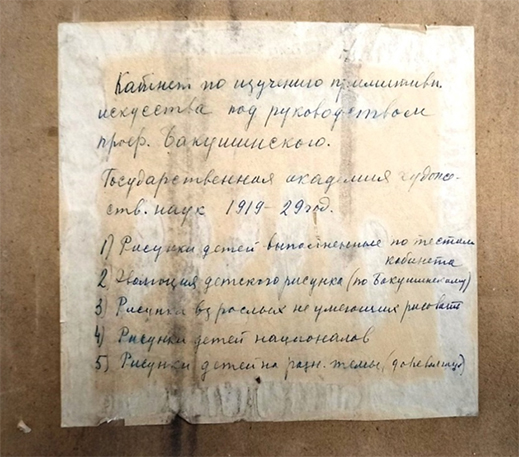 Кабинет по изучению примитивн.
искусства под руководством
проф. Бакушинского.
Государственная академия художе-
ств. наук 1919-29 год.
1) Рисунки детей выполненные по тестам
кабинета
2 Эволюция детского рисунка (по Бакушинскому)
3) Рисунки взрослых не умеющих рисовать
4) Рисунки детей националов
5) Рисунки детей на разн. темы,